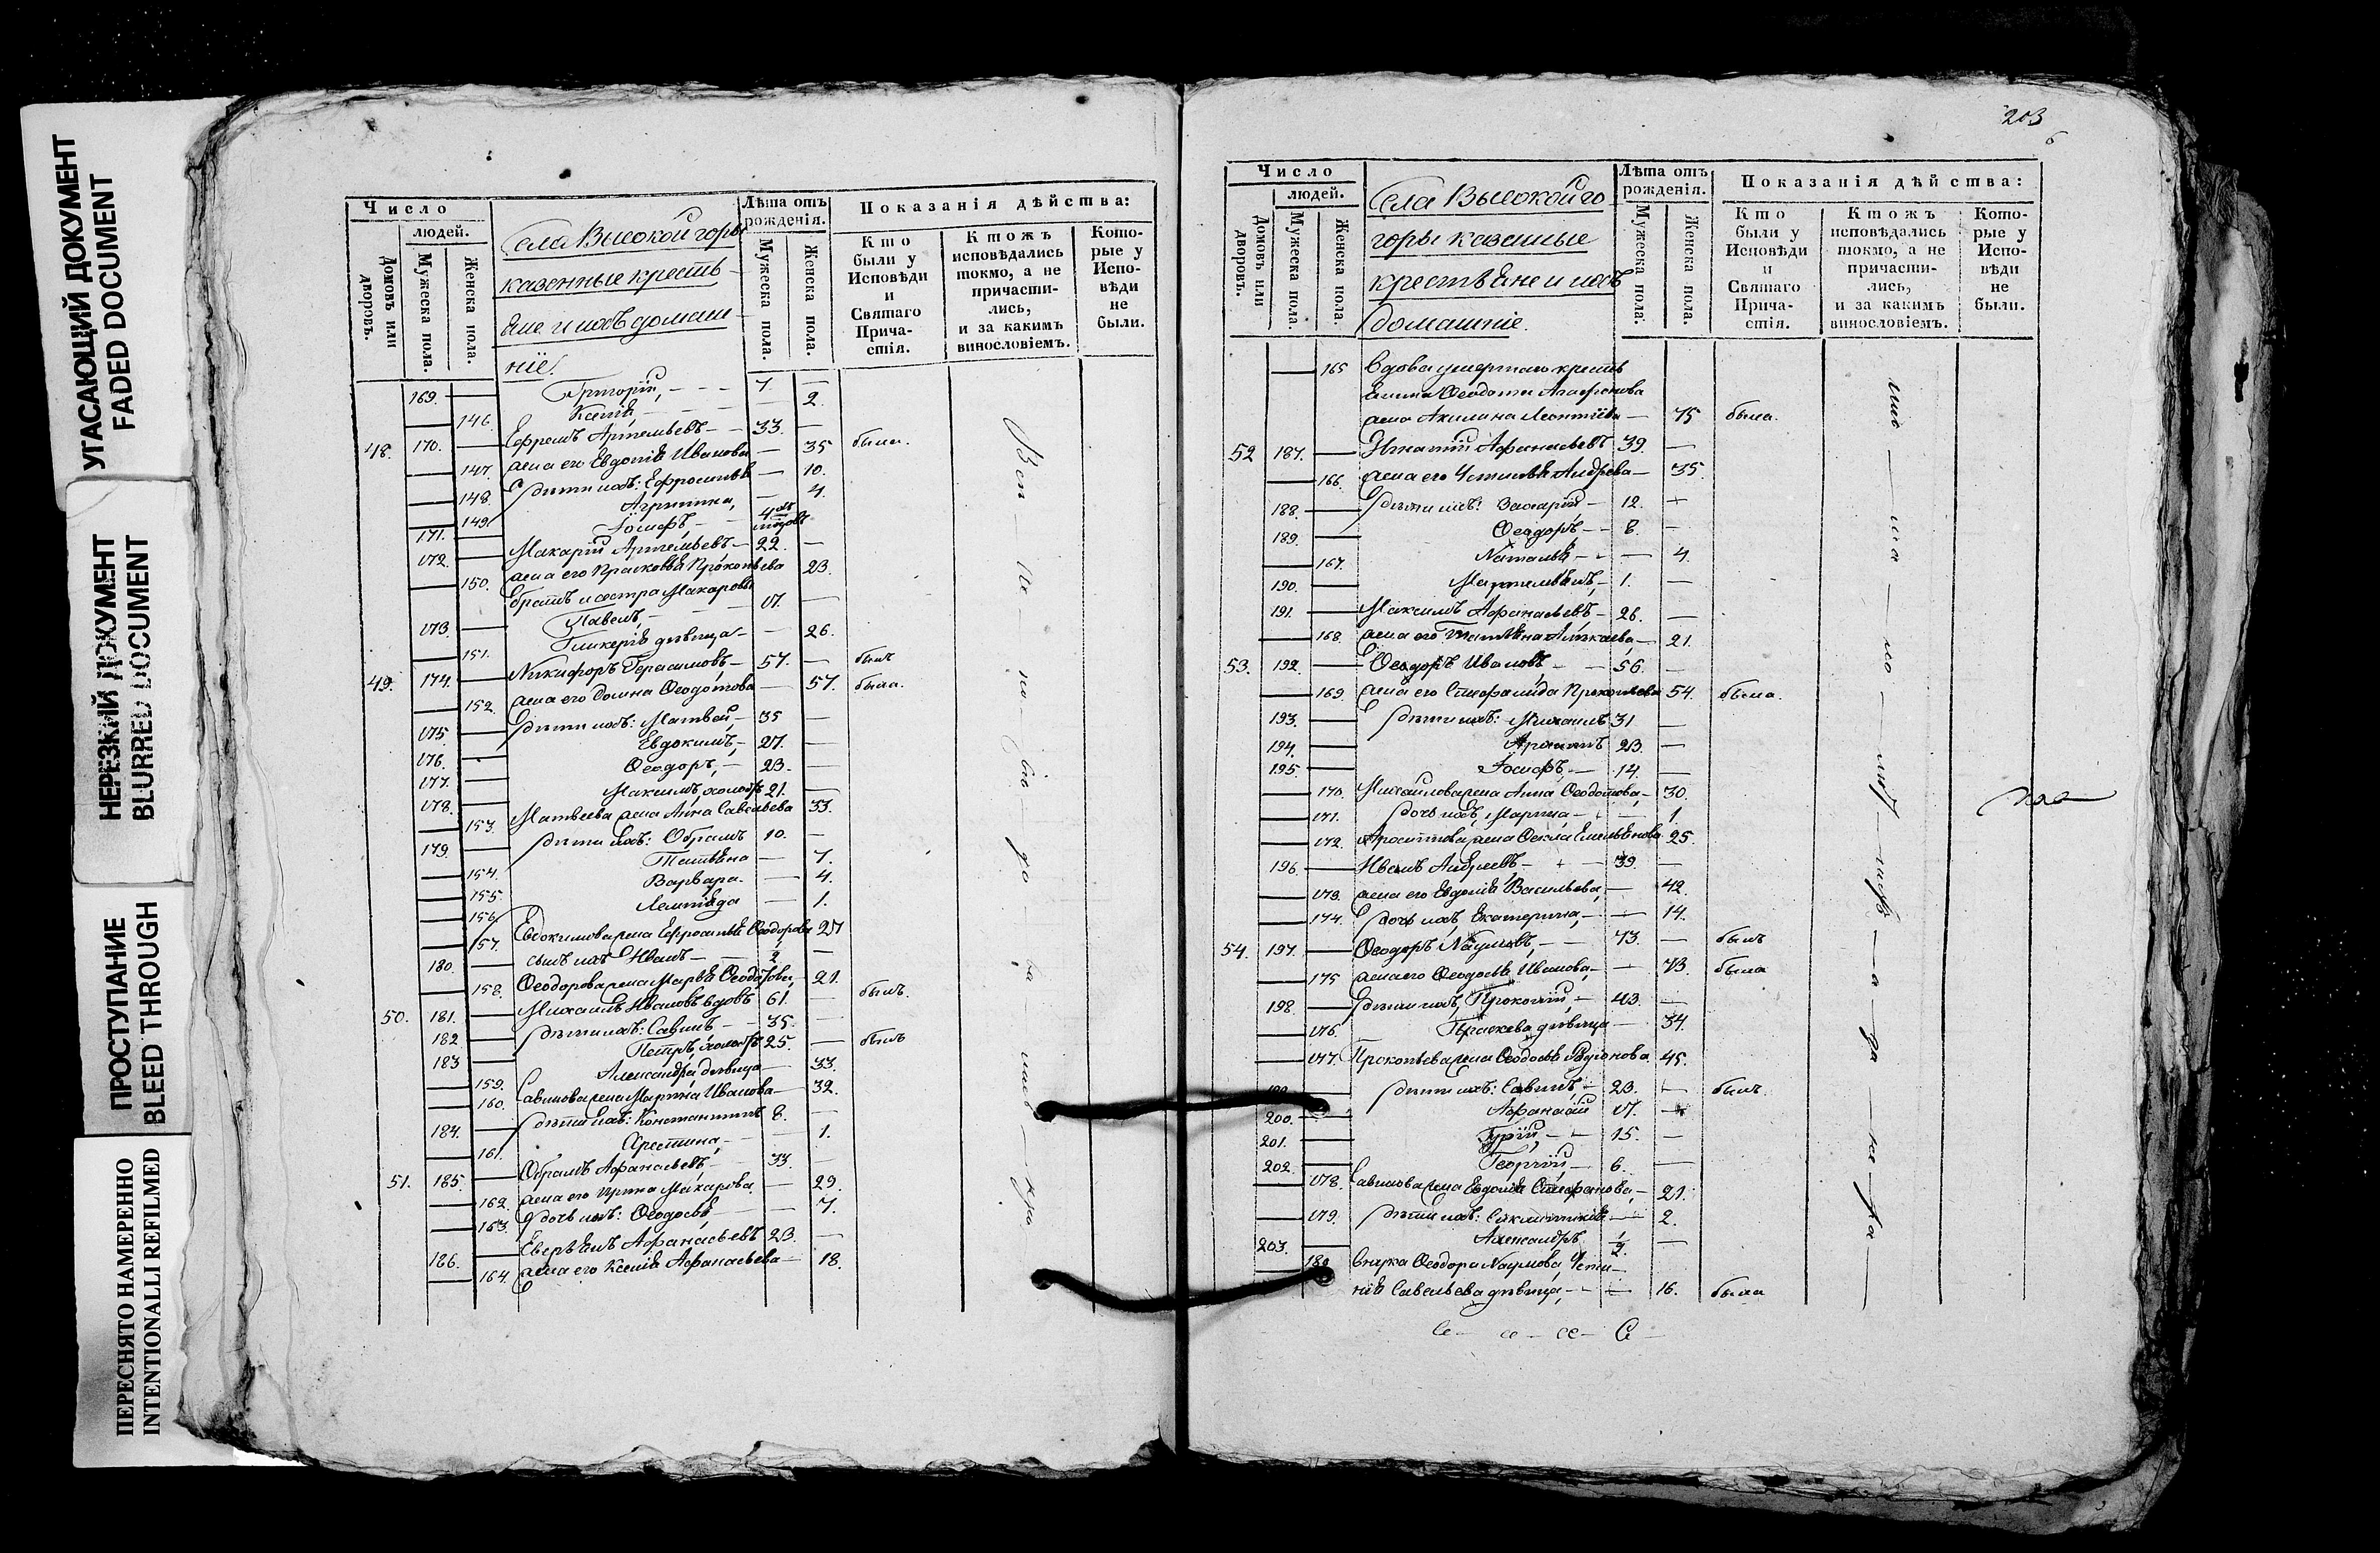 УГАСАЮЩИЙ ДОКУМЕНТ
FADED DOCUMENT
НЕРЕЗКИЙ ДОКУМЕНТ
BLURRED DOCUMENT
ПРОСТУПАНИЕ
BLEED THROUGH
ПЕРЕСНЯТО НАМЕРЕННО
INTENTIONALLI REFILMED
Число
людей.
Домовъ или дворовъ.
Мужеска пола.
Женска пола.
Села Высокой горы
казенные кресть
яне и ихъ домаш
ніе.
Лѣта отъ рожденія.
Мужеска пола.
Женска пола.
Показанія дѣйства:
Кто были у Исповѣди и Святаго Прича-стія.
Ктожъ исповѣдались токмо, а не причасти-лись, и за какимъ винословіемъ.
Кото-рые у Испо-вѣди не были.
169. Григорій, 7.
146. Ксенія, 2.
48. 170. Ефремъ Артемьевъ 33.
147. жена его Евдокія Иванова 35 была.
148. дѣти ихъ: Ефросинья 10.
149. Агрипина, 4.
171. Іосифъ
172. Макарій Артемьевъ 22.
150. жена его Прасковья Прокопьева 23.
братъ и сестра Макаровы
173. Павелъ, 17.
151. Гликерія дѣвица 26.
49. 174. Никифоръ Герасимовъ 57. былъ
152. жена его Домна Ѳеодотова 57. была.
175. дѣти ихъ: Матвей, 35
176. Евдокимъ, 27.
177. Ѳеодоръ, 23.
178. Максимъ, холостъ 21.
153. Матвеева жена Анна Савельева 33.
179. дѣти ихъ: Обрамъ 10.
154. Татьяна 7.
155. Варвара 4.
156. 1.
157. Евдокимова жена Ефросинья Ѳеодорова 27
180. сынъ ихъ Иванъ 2.
158. Ѳеодорова жена Марья Ѳеодотова, 21.
50. 181. Михаилъ Ивановъ вдовъ 61. былъ.
182 дѣти ихъ: Савинъ 35.
183 Петръ, холостъ 25. былъ
159. Александра дѣвица 33.
160. Савинова жена Марина Иванова 32.
184. дѣти ихъ: Константинъ 8.
161. Христина, 1.
51. 185. Обрамъ Афанасьевъ 33.
162. жена его Ирина Макарова 29.
163. дочь ихъ: Ѳеодосья 7.
186. Афанасьевъ 23.
164. жена его Ксенія Афанасьева 18.
203
Число
людей.
Домовъ или дворовъ.
Мужеска пола.
Женска пола.
Села Высокой го
горы казенные
крестьяне и ихъ
домашніе.
Лѣта отъ рожденія.
Мужеска пола.
Женска пола.
Показанія дѣйства:
Кто были у Исповѣди и Святаго Прича-стія.
Ктожъ исповѣдались токмо, а не причасти-лись, и за какимъ винословіемъ.
Кото-рые у Испо-вѣди не были.
165 Вдова умершаго кресть
янина Ѳеодота Агафонова
жена Акилина Леонтіева 75 была.
52 187. Игнатій Афанасьевъ 39.
166. жена его Устинья Андреева 35.
188. дѣти ихъ: Захарій 12.
189. Ѳеодоръ 8.
167. Наталья 4.
190. 1.
191. Максимъ Афанасьевъ 26.
168. жена его Татьяна 21.
53. 192. Ѳеодоръ Ивановъ 56.
169 жена его Стефанида Прокопьева 54. была.
193. дѣти ихъ: Михаилъ 31
194. 23.
195. Іосифъ 14.
170. Михайлова жена Анна Ѳеодотова, 30.
171. дочь ихъ, Марина 1
172. жена Ѳекла Емельянова 25.
196. Иванъ Андреевъ 39.
173. жена его Евдокія Васильева, 42.
174. дочь ихъ, Екатерина, 14.
54. 197. Ѳеодоръ Наумовъ, 73. былъ
175 жена его Ѳеодосья Иванова 73. была
198. дѣти ихъ, Прокопій, 43.
176. Праскева дѣвица 34.
177. Прокопьева жена Ѳеодосья Родіонова 45.
дѣти ихъ: Савинъ, 23. былъ.
200. Афанасій 17.
201. Гурій 15.
202. Георгій 6.
178. Савинова жена Евдокія Стефанова, 21.
179. дѣти ихъ: 2.
203. Александръ 1/2.
180 Внука Ѳеодора Наумова, Усти
нія Савельева дѣвица, 16. была